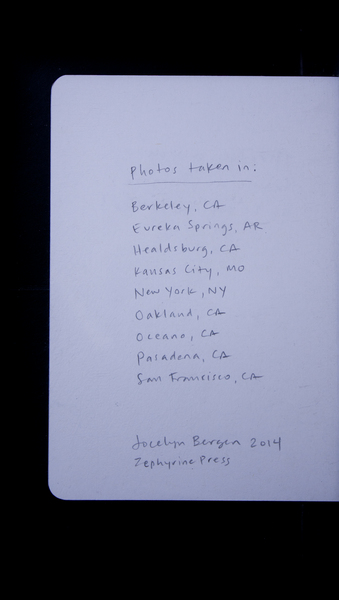 photos taken in:
Berkeley, CA
Eureka Springs, AR
Healdsburg, CA
Kansas City, MO
New York, NY
Oakland, CA
Oceano, CA
Pasadena, CA
San Francisco, CA
Jocelyn Bergen 2014
Zephyrine Press